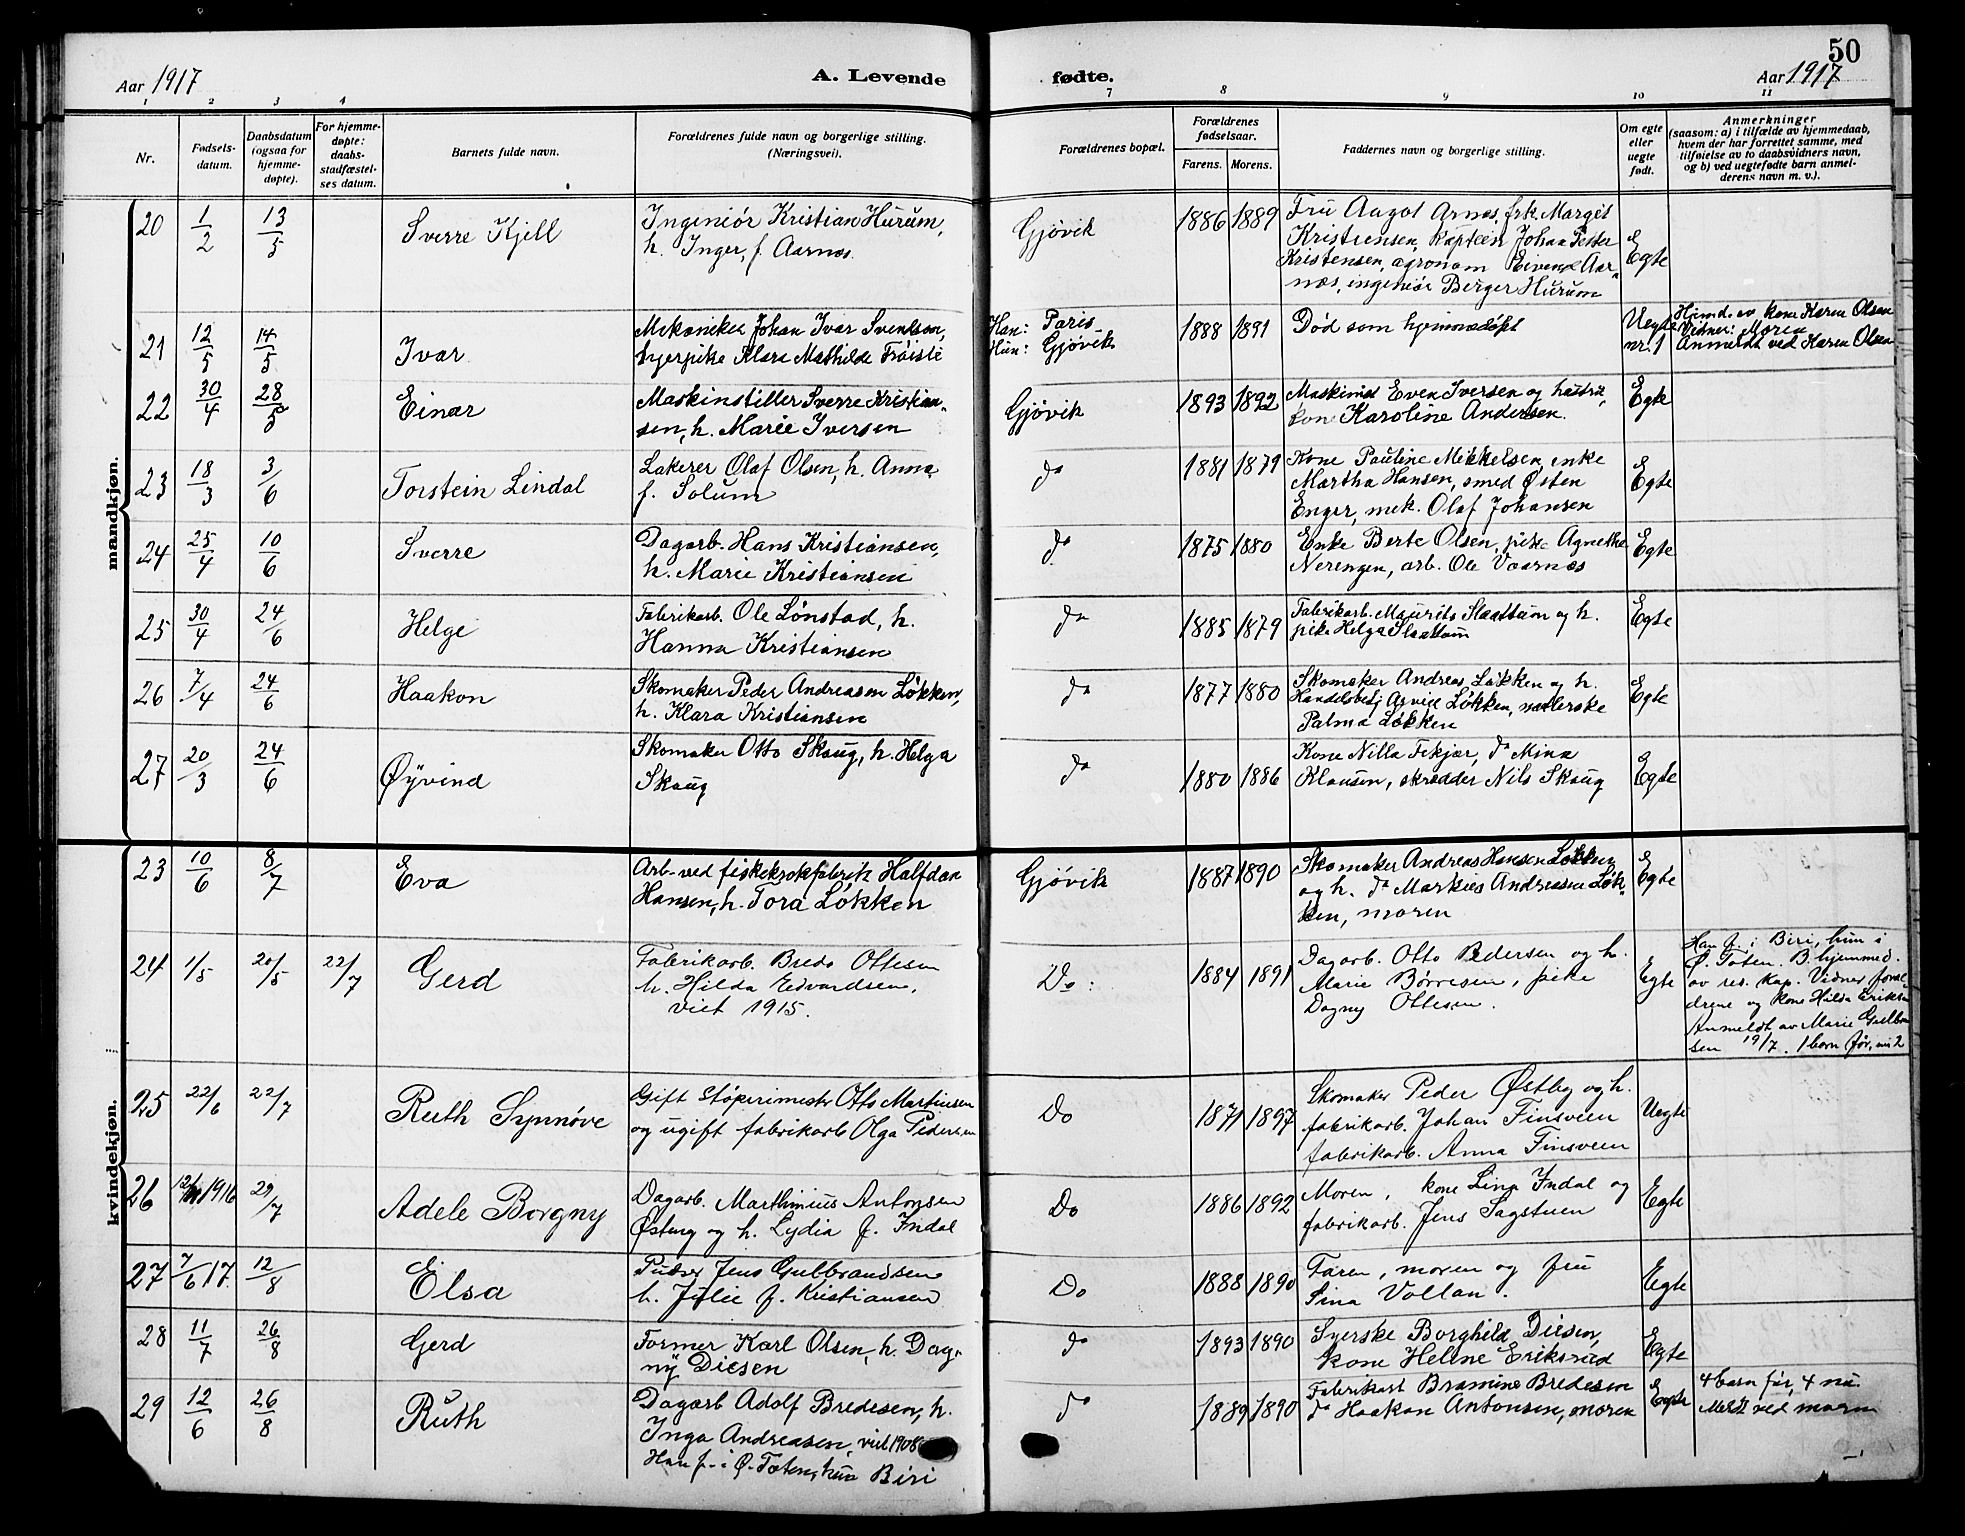 50
Aar 1917
A. Levende fødte.
Aar 1917
1 2 3 4 7 8 9 10 11
Nr.
Fødsels-
datum.
Daabsdatum
(ogsaa for
hjemme-
døpte).
For hjemme-
døpte:
daabs-
stadfæstel-
ses datum.
Barnets fulde navn.
Forældrenes fulde navn og borgerlige stilling.
(Næringsvei).
Forældrenes bopæl.
Forældrenes
fødselsaar.
Farens. Morens.
Faddernes navn og borgerlige stilling.
Om egte
eller
uegte
født.
Anmerkninger
(saasom: a) i tilfælde av hjemmedaab,
hvem der har forrettet samme, med
tilføielse av to daabsvidners navn,
og b) ved uegtefødte barn anmel-
derens navn m. v.).
mandkjøn.
20 1/2 13/5 Sverre Kjell
Ingeniör Kristian Hurum,
h. Inger, f. Aarnæs.
Gjövik 1886 1889
Fru Aagot Arnæs, frk. Margit
Kristensen, kaptein Johan Petter
Kristensen, agronom Eivend Aar-
næs, ingeniör Berger Hurum
Egte
21 12/5 14/5 Ivar
Mekaniker Johan Ivar Svendsen,
tyerpike Klara Mathilde Tröiste
Han: Paris
Hun: Gjövik
1888 1891 Död som hjemmedöpt
Uegte
nr. 1
Hjemd. av kone Karen Olsen
Vidner: Moren
Anmeldt ved Karen Olsen
22 30/4 28/5 Einar
Maskinstiller Sverre Kristian-
sen, h. Marie Iversen
Gjövik 1893 1892
Maskinist Even Iversen og hustru,
kone Karoline Andersen.
Egte
23 18/3 3/6 Torstein Lindal
Lakerer Olaf Olsen, h. Anna
f. Solum
do 1881 1879
Kone Pauline Mikkelsen, enke
Martha Hansen, smed Østen
Enger, mek. Olaf Johansen
Egte
24 25/4 10/6 Sverre
Dagarb. Hans Kristiansen,
h. Marie Kristiansen
do 1875 1880
Enke Berte Olsen, pike Agnethe
Nerengen, arb. Ole Vaarnæs
Egte
25 30/4 24/6 Helge
Fabrikarb. Ole Lönstad, h.
Hanna Kristiansen
do 1885 1879
Fabrikarb. Maurits Slaattum og h.
pike Helga Slaattum
Egte
26 7/4 24/6 Haakon
Skomaker Peder Andreasen Løkken,
h. Klara Kristiansen
do 1877 1880
Skomaker Andreas Løkken og h.
Handelsbetj. Arvid Løkken,
Palma Løkken
Egte
27 20/3 24/6 Øyvind
Skomaker Otto Skaug, h. Helga
Skaug
do 1880 1886
Kone Nilla Fikjær, do Mina
Klausen, skrædder Nils Skaug
Egte
kvindekjøn.
23 10/6 8/7 Eva
Arb. ved fiskekrokfabrik Halfdan
Hansen, h. Tora Løkken
Gjövik 1887 1890
Skomaker Andreas Hansen Løkken
og h. do Markus Andreasen Løk-
ken, moren
Egte
24 1/5 20/5 22/7 Gerd
Fabrikarb. Bredo Ottesen
h. Hilda Edvardsen,
viet 1915.
Do: 1884 1891
Dagarb. Otto Pedersen og h.
Marie Börresen, pike
Dagny Ottesen.
Egte
Han f. i Biri, hun i
Ø. Toten. B. hjemmed.
av res. kap. Vidner foræl-
drene og kone Hilda Eriksen
Anmeldt av Marie Gulbran
sen 19/7. 1 barn før, nu 2
25 22/6 22/7 Ruth Synnöve
Gift Støperimester Otto Martinsen
og ugift fabrikarb Olga Pedersen
Do 1871 1897
Skomaker Peder Østby og h.
fabrikarb. Johan Finsveen
fabrikarb. Anna Finsveen
Uegte
26 1916 29/7 Adele Borgny
Dagarb. Marthinius Antonsen
Østeng og h. Lydia f. Indal
Do 1886 1892
Moren, kone Lina Indal og
fabrikarb. Jens Sagstuen
Egte
27 7/6 17. 12/8 Elsa
Pudser Jens Gulbrandsen
h. Julie f. Kristiansen
Do 1888 1890
Faren, moren og fru
Sina Vollan.
Egte
28 11/7 26/8 Gerd
Former Karl Olsen, h. Dag-
ny Diesen
do 1893 1890
Syerske Borghild Diesen,
kone Helene Eriksrud
Egte
29 12/6 26/8 Ruth
Dagarb Adolf Bredesen, h.
Inga Andreasen, viet 1908
Han f. i Ø. Toten, hun Biri
do 1889 1890
Fabrikarb Bramine Bredesen
do Haakon Antonsen, moren
Egte
4 barn før, 4 nu
Meldt ved moren